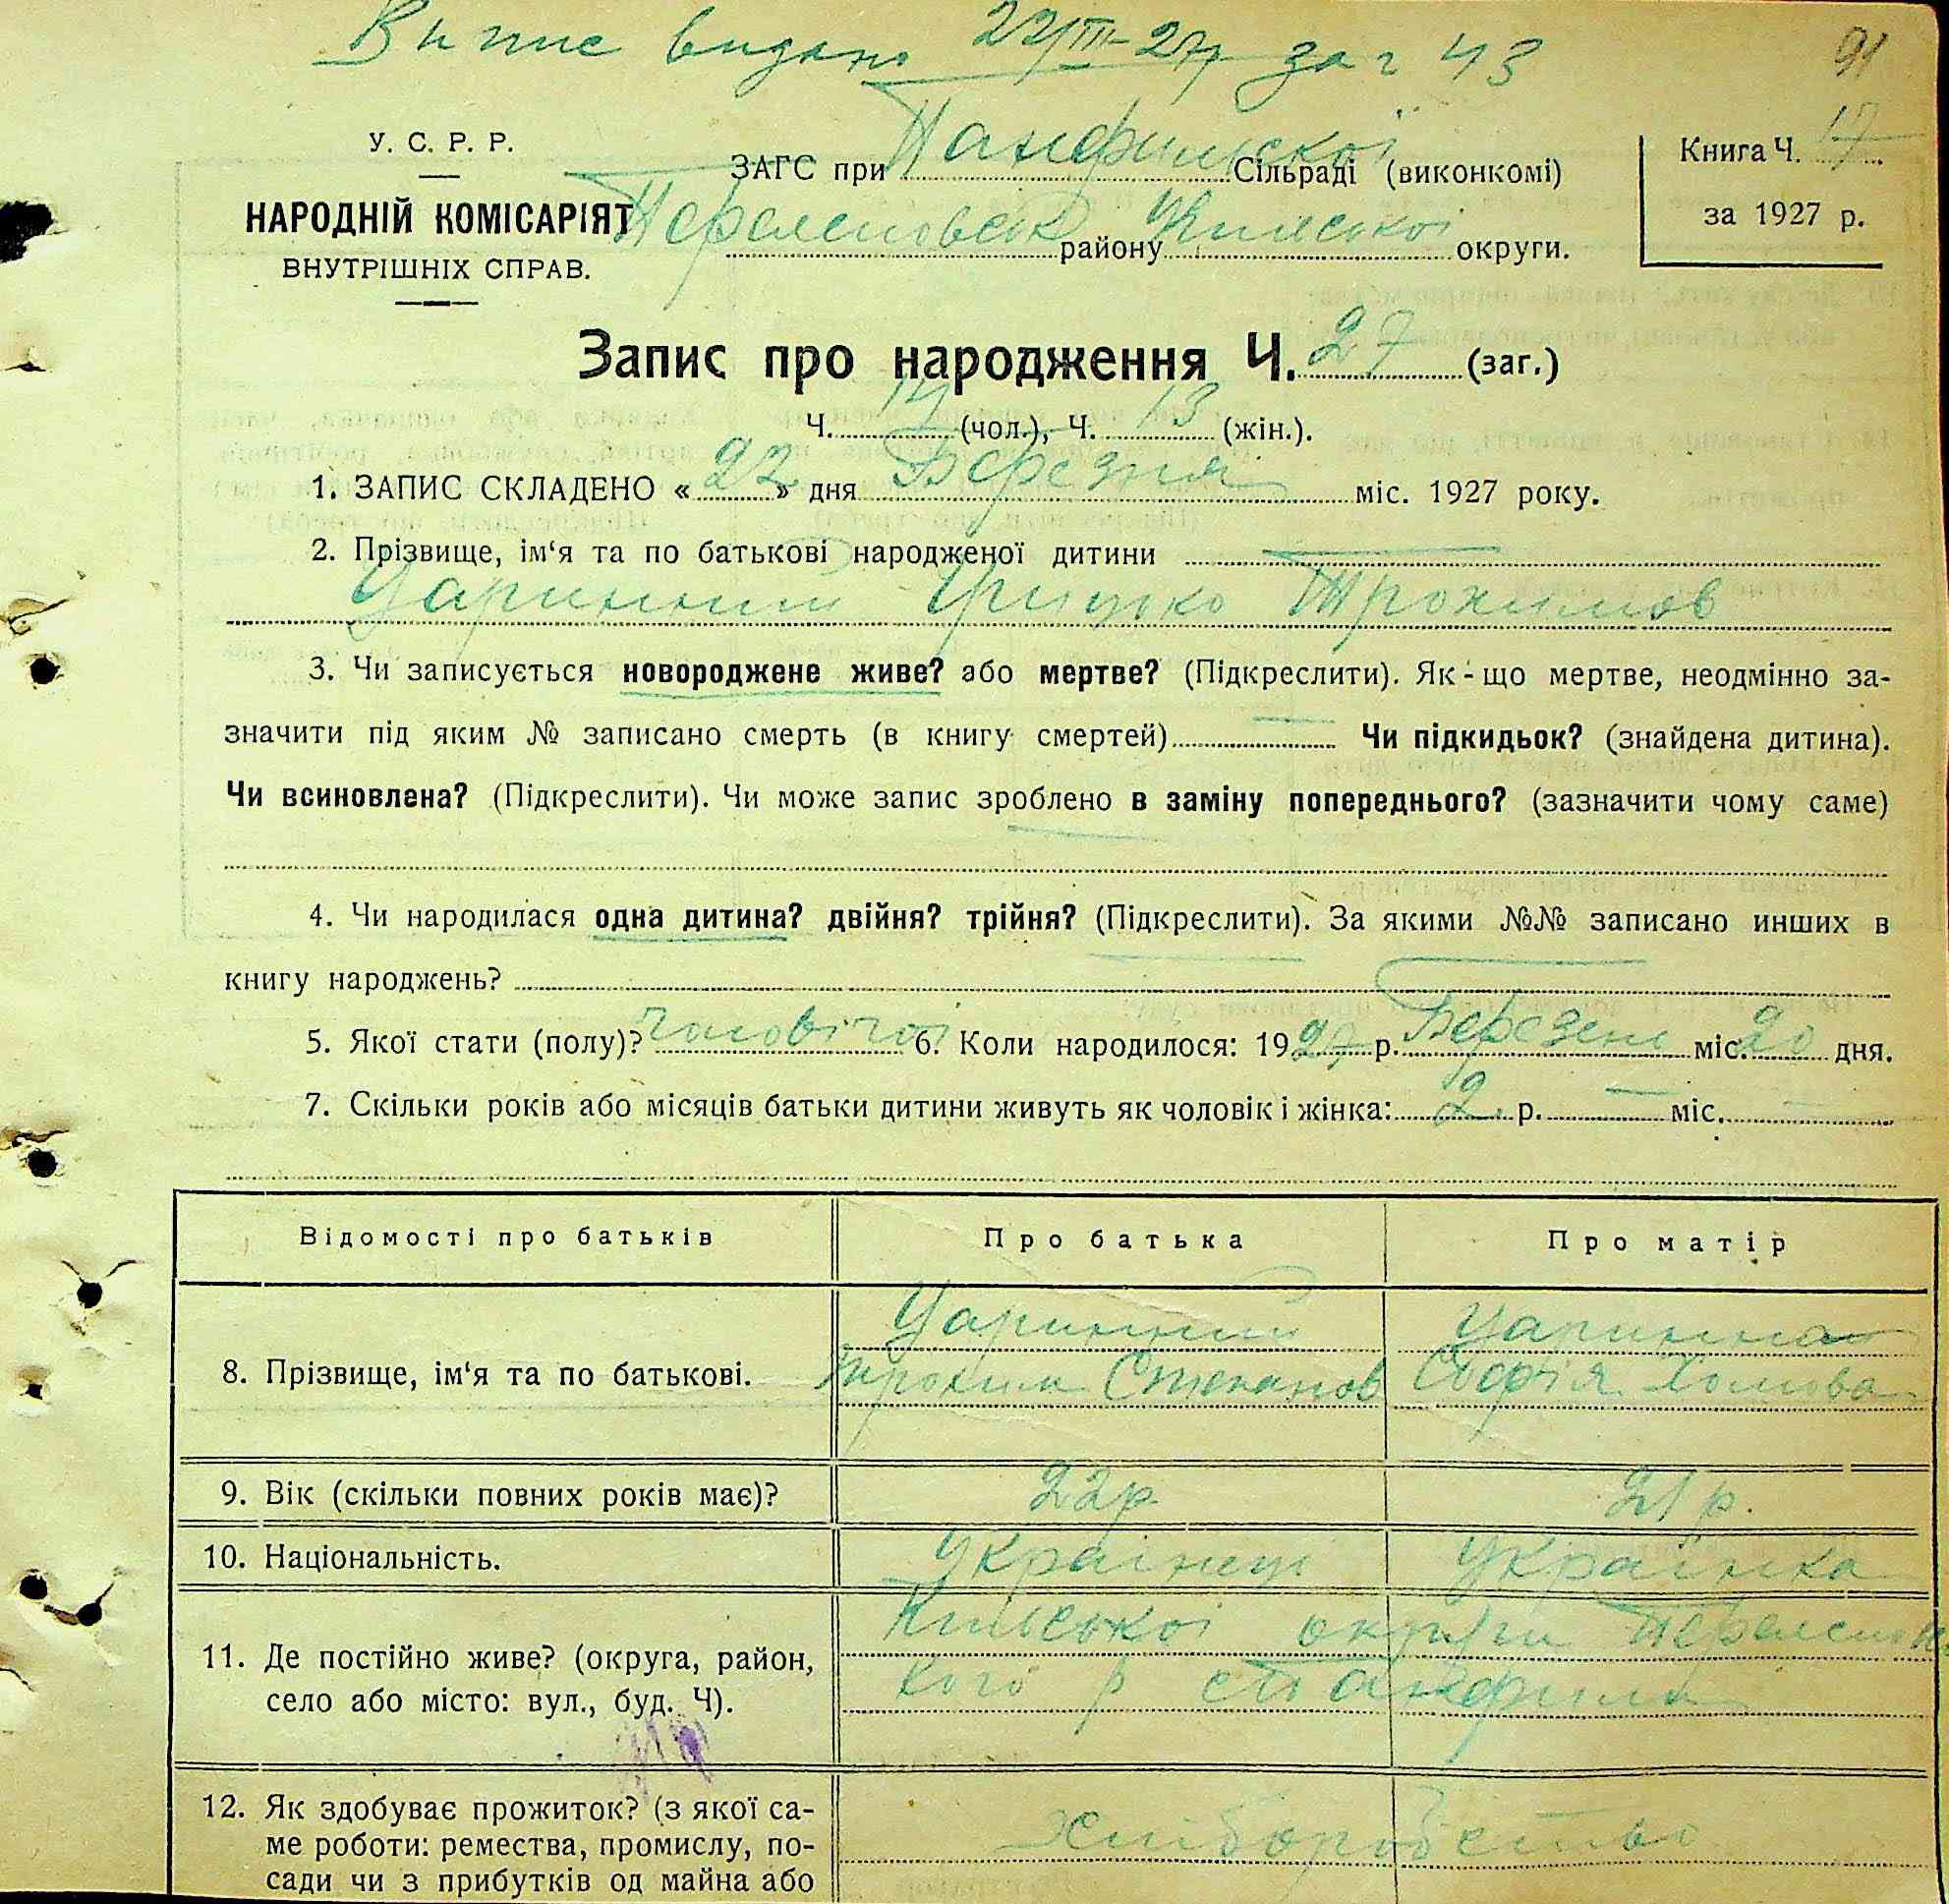 Випис видано 22/III-27р за г 43
91
У. С. Р. Р.
НАРОДНІЙ КОМІСАРІЯТ
ВНУТРІШНІХ СПРАВ.
ЗАГС при Панфильскої Сільраді (виконкомі)
району Київської округи.
Книга Ч. 17
за 1927 р.
Запис про народження Ч. 27 (заг.)
Ч. 14 (чол.), Ч. 13 (жін.).
1. ЗАПИС СКЛАДЕНО « 22 » дня Березня міс. 1927 року.
2. Прізвище, ім‘я та по батькові народженої дитини
Царинний Грицько Трохимов
3. Чи записується новороджене живе? або мертве? (Підкреслити). Як-що мертве, неодмінно за-
значити під яким № записано смерть (в книгу смертей) Чи підкидьок? (знайдена дитина).
Чи всиновлена? (Підкреслити). Чи може запис зроблено в заміну попереднього? (зазначити чому саме)
4. Чи народилася одна дитина? двійня? трійня? (Підкреслити). За якими №№ записано инших в
книгу народжень?
5. Якої стати (полу)? чоловічої 6. Коли народилося: 1927 р. Березень міс. 20 дня.
7. Скільки років або місяців батьки дитини живуть як чоловік і жінка: 2 р. — міс. —
Відомості про батьків
Про батька
Про матір
8. Прізвище, ім‘я та по батькові.
Царинний
Трохим Степанов
Царинна
Софія Хомова
9. Вік (скільки повних років має)?
22р
21 р.
10. Національність.
Українець
Українка
11. Де постійно живе? (округа, район,
село або місто: вул., буд. Ч).
Київської округи
кого р с Панфили
12. Як здобуває прожиток? (з якої са-
ме роботи: ремества, промислу, по-
сади чи з прибутків од майна або
хліборобство